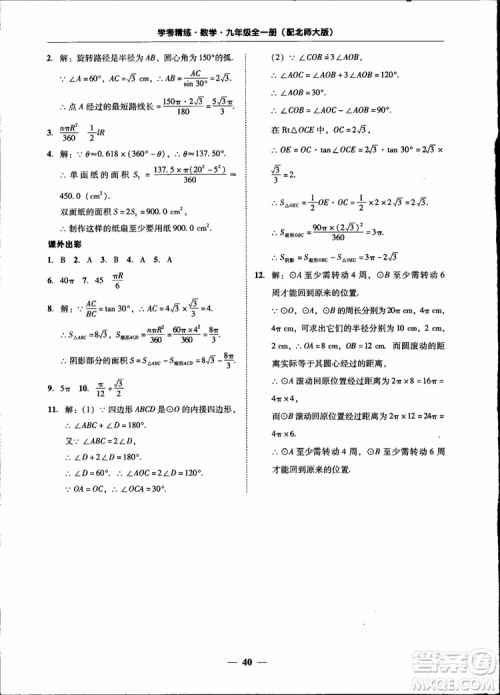 学考精练·数学·九年级全一册（配北师大版）
2. 解：旋转路径是半径为 AB，圆心角为
150°的弧.
∵ ∠A=60°，∴ AB=AC/sin 30°=2√3.
∴ 点 A 经过的最短路线长=150π·2√3/180=5√3/3 π.
3. nπR²/360 1/2 lR
4. 解：∵ θ≈0.618×(360°−θ)，∴ θ≈137.50°.
∴ 单面纸的面积 S₁=137.5×π(20²−5²)/360≈
450.0 (cm²).
双面纸的面积 S=2S₁≈900.0 cm².
∴ 制作这样的纸扇至少需要用纸 900.0 cm².
课外出彩
1. B 2. A 3. B 4. A 5. A
6. 40π 7. 45 πR/6
8. 解：∵ AC/BC=tan 30°，∴ AC=4√3×√3/3=4.
∴ S△ABC=8√3，S扇形ACD=nπR²/360=60π×4²/360=8π/3.
∴ 阴影部分的面积=S△ABC−S扇形ACD=8√3−8π/3.
9. 5π 10. π/12+√3/2
11. 解：(1) ∵ 四边形 ABCD 是⊙O 的内接四边形，
∴ ∠ABC+∠D=180°.
又∵ ∠ABC=2∠D，
∴ ∠D+2∠D=180°.
∴ ∠D=60°. ∴ ∠AOC=2∠D=120°.
∵ OA=OC，∴ ∠OCA=30°.
(2) ∵ ∠COB=3∠AOB，
∴ ∠AOC=∠AOB+3∠AOB=120°.
∴ ∠AOB=30°.
∴ ∠COB=∠AOC−∠AOB=90°.
在 Rt△OCE 中，OC=2√3，
∴ OE=OC·tan∠OCE=2√3·tan 30°=2√3×
√3/3=2.
∴ S△OEC=1/2 OE·OC=1/2×2×2√3=2√3.
∴ S扇形OBC=90π×(2√3)²/360=3π.
∴ S阴影=S扇形OBC−S△OEC=3π−2√3.
12. 解：⊙A 至少需转动 4 周，⊙B 至少需转动 6
周才能回到原来的位置.
∵ ⊙A 和⊙B 的周长分别为 12π cm，8π
cm，可求出它们的半径分别为 6 cm，4 cm.
∴ OA=12 cm，OB=8 cm.
∴ ⊙A 至少需转动 4 周，⊙B 至少需转动 6 周
才能回到原来的位置.
— 40 —
答案圈
MXQE.COM